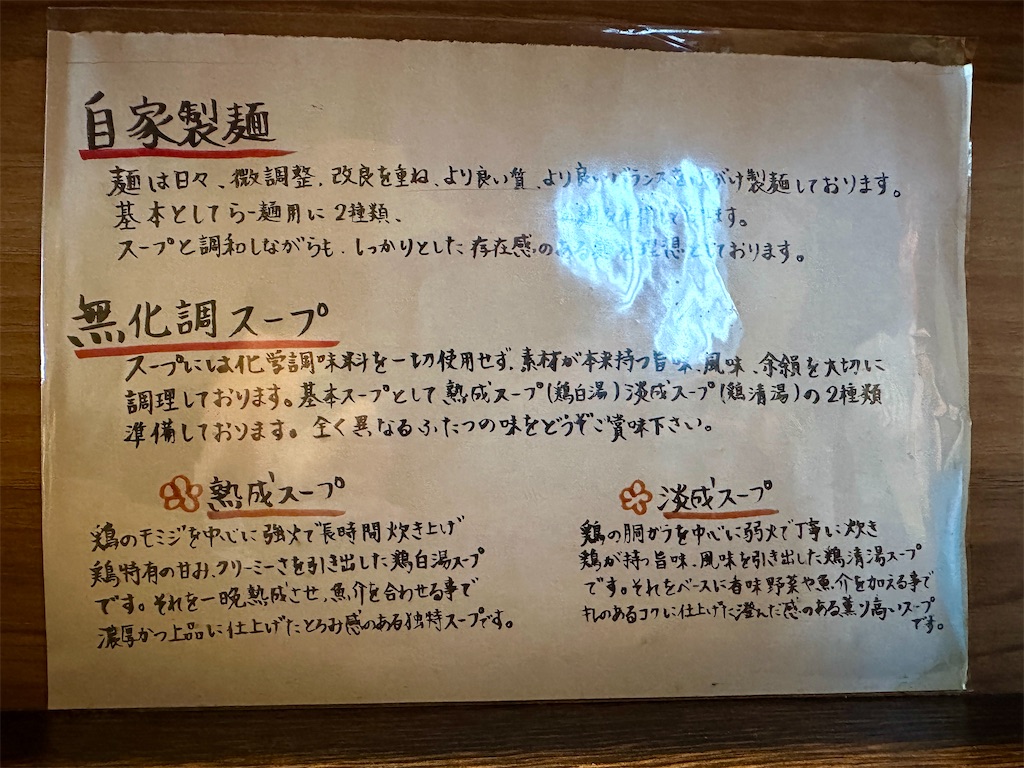 自家製麺
麺は日々、微調整、改良を重ね、より良い質、より良いバランスを心がけ製麺しております。
基本としてらー麺用に2種類、 ます。
スープと調和しながらも、しっかりとした存在感のある麺を理想としております。
無化調スープ
スープには化学調味料を一切使用せず、素材が本来持つ旨味、風味、余韻を大切に
調理しております。基本スープとして熟成スープ(鶏白湯)淡成スープ(鶏清湯)の2種類
準備しております。全く異なるふたつの味をどうぞご賞味下さい。
熟成スープ
鶏のモミジを中心に強火で長時間炊き上げ
鶏特有の甘み、クリーミーさを引き出した鶏白湯スープ
です。それを一晩熟成させ、魚介を合わせる事で
濃厚かつ上品に仕上げたとろみ感のある独特スープです。
淡成スープ
鶏の胴ガラを中心に弱火で丁寧に炊き
鶏が持つ旨味、風味を引き出した鶏清湯スープ
です。それをベースに香味野菜や魚介を加える事で
キレのあるコクに仕上げた澄んだ感のある薫り高いスープ
です。